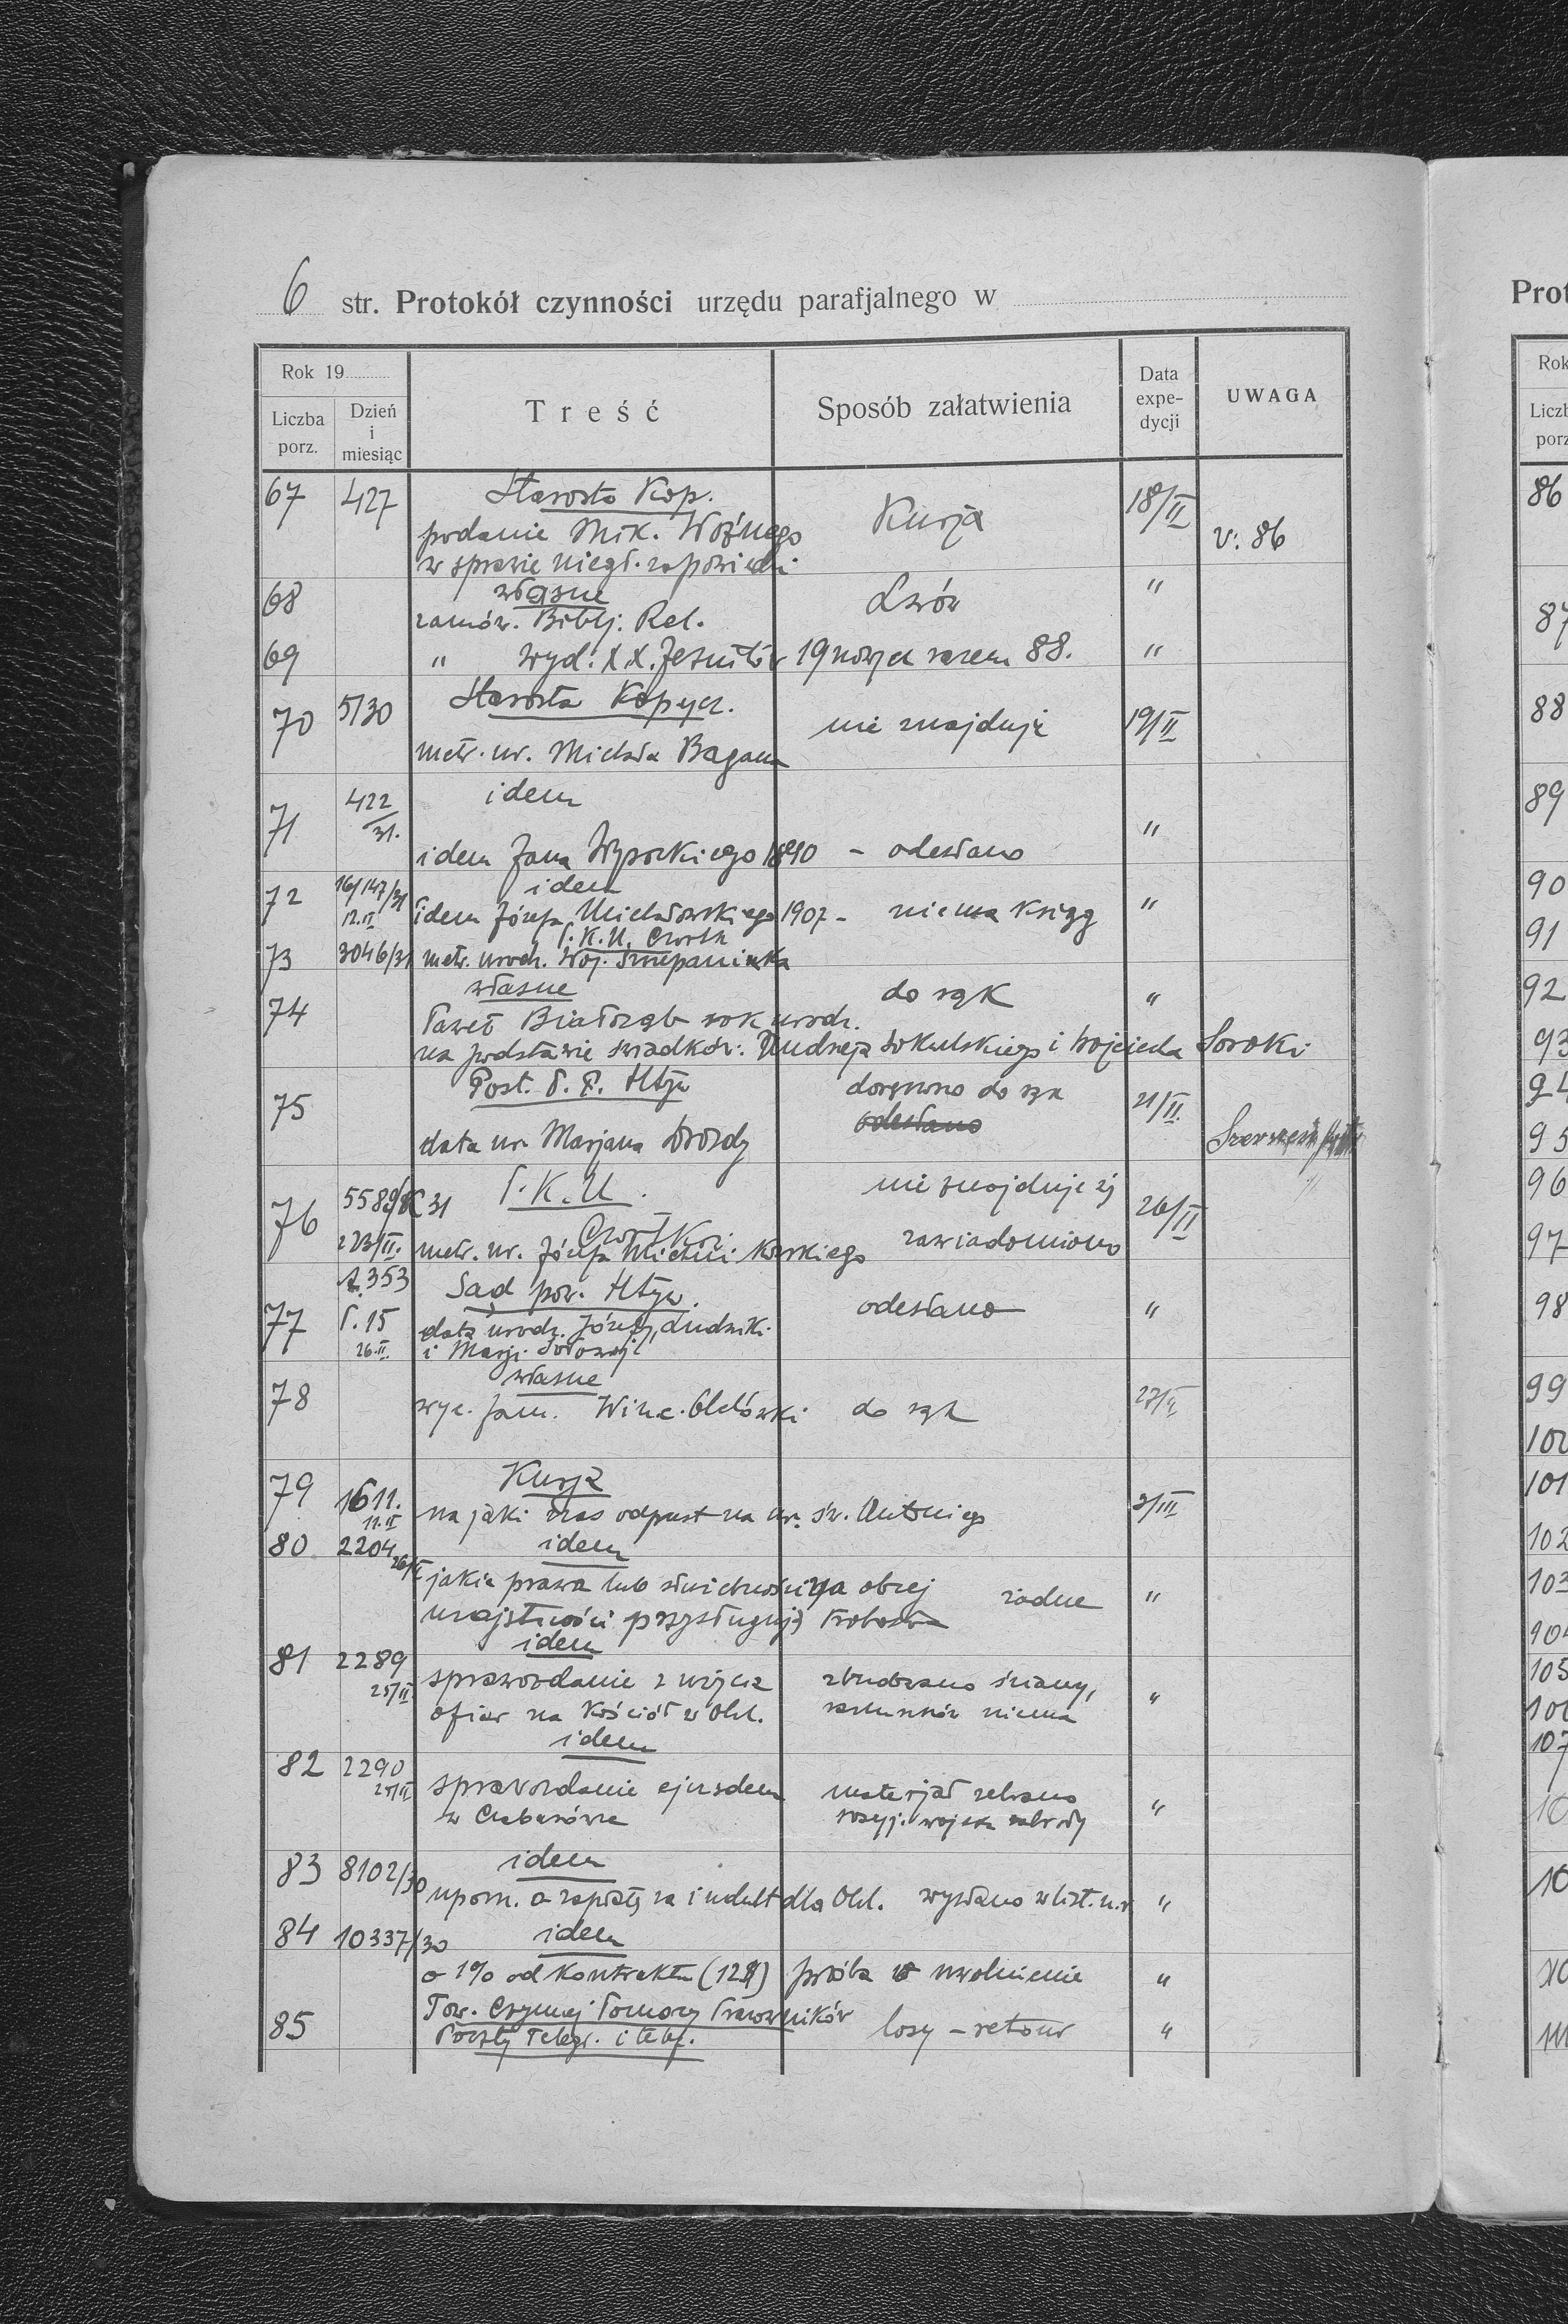 6 str. Protokół czynności urzędu parafjalnego w
Rok 19
Liczba porz.
Dzień i miesiąc
Treść
Sposób załatwienia
Data expe-dycji
UWAGA
67 427 Starosta Kop. 18/II
podanie Mik. Woźnego Kurja v. 86
w sprawie niegł. zapowiedzi
68 własne Lwów "
zamów. Biblj. Rel.
69 " wyd. XX. Jezuitów 19 nowych razem 88. "
70 5/30 Starosta Kopycz. nie znajduję 19/II
metr. ur. Michała Bagana
71 422/31. idem "
idem Jana Wysockiego 1890 – odesłano
72 16/147/31 idem
12.II idem Józefa Michałowskiego 1907 – niema ksiąg "
P.K.U. Czortk
73 3046/31 metr. urodz. Woj. Szczepaniaka
74 własne do rąk "
Paweł Białorąb rok urodz.
na podstawie świadków: Andrzeja Sokulskiego i Wojciecha Soroki
75 Post. P.P. Htyn doręczono do rąk 21/II
odesłano
data ur. Marjana Drozdy
76 5589/ 31 P.K.U. nie znajduje się 26/II
223/II. Czortków
metr. ur. Józefa zawiadomiono
353
77 P. 15 Sąd pow. Htyn. odesłano "
26.II. data urodz. Józefy, Ludwiki
i Marji
78 własne 27/II
wyc. fam. Winc. do rąk
79 1611. Kurja 3/III
11.II na jaki czas odpust na ur. św. Antoniego
80 2204 26/II idem
jakie prawa lub służebności na obcej żadne "
majętności przysługują
81 2289 idem
25/II sprawozdanie z użycia zbudowano ściany, "
ofiar na kościół w Okł. rachunków niema
82 2290 idem
25/II sprawozdanie ejusdem materjał zebrano "
w Czabarówce
83 8102/30 idem
upom. o zapłatę za indult dla Okł. wysłano w list. u.r "
84 10337/30 idem
o 1% od kontraktu (128) prośba o uwolnienie "
85 Tow. Czynnej Pomocy Pracowników
Poczty Telegr. i telef. losy – retour "
Prot
Rok
Liczb
porz
86
87
88
89
90
91
92
93
94
95
96
97
98
99
100
101
102
103
104
105
106
107